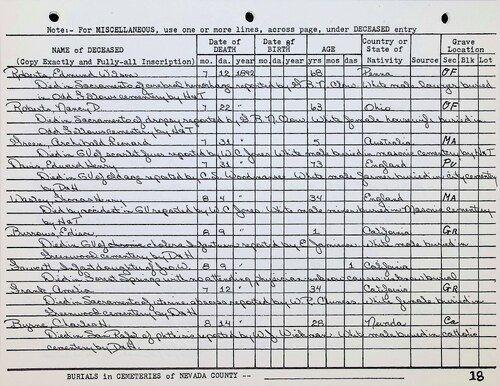 Note:- For MISCELLANEOUS, use one or more lines, across page, under DECEASED entry
NAME of DECEASED
(Copy Exactly and Fully-all Inscription)
Date of DEATH
mo. da. year
Date of BIRTH
mo. da. year
AGE
yrs mos das
Country or State of Nativity
Source
Grave Location
Sec Blk Lot
Roberts, Edmund W 7 12 1892 68 Penna OF
Died in Sacramento of cerebral hemorrhage reported by White male lawyer buried
in Odd Fellows cemetery by H&T
Roberts, Nancy D. 7 22 " 63 Ohio OF
Died in Sacramento of dropsy reported by White female housewife buried in
Odd Fellows cemetery by H&T
Green, Archibald Leonard 7 31 " 5 Australia MA
Died in GV of scarlet fever reported by W.C. Jones White male buried in masonic cemetery by H&T
Davis, Edward Henry 7 31 " 73 England Pv
Died in GV of old age reported by C.S. White male buried in city cemetery
by D&H
Wesley, Thomas Henry 8 4 " 34 England MA
Died by accident in GV reported by W.C. Jones White male miner buried in Masonic cemetery
by H&T
Burrows, Edison 8 9 " 1 California GR
Died in GV of cholera infantum reported by White male buried in
Greenwood cemetery by D&H
Fawcett, Infant daughter of W. 8 9 " 1 California
Died in Sweet Springs with no attending physician burial
Frank, Amelia 7 12 " 34 California GR
Died in Sacramento of uterine abscess reported by W. White female buried in
Greenwood cemetery by D&H
Byrne, Charles H. 8 14 " 28 Nevada Ca
Died in San Pablo of phthisis reported by W.J. White male buried in catholic
cemetery by D&H.
BURIALS in CEMETERIES of NEVADA COUNTY -- 18